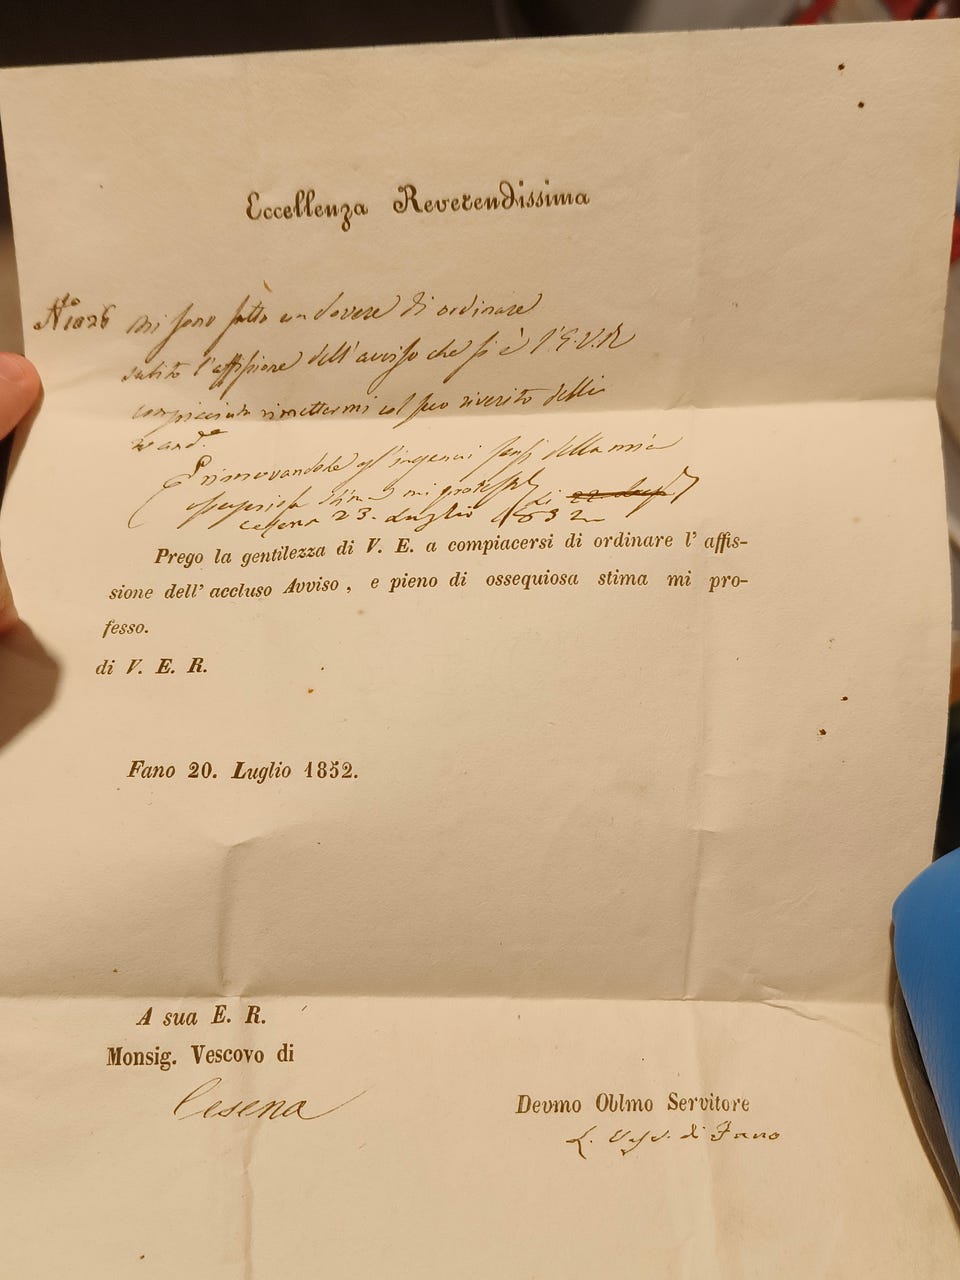 Eccellenza Reverendissima
N.º 1026 Mi sono fatto un dovere di ordinare
subito l'affissione dell'avviso che si è l'E.V.R
compiaciuta rimettermi col suo riverito delli
rinnovandole gl'ingenui sensi della mia
stima mi
Cesena 23. Luglio 1852
Prego la gentilezza di V. E. a compiacersi di ordinare l' affis-
sione dell' accluso Avviso , e pieno di ossequiosa stima mi pro-
fesso.
di V. E. R.
Fano 20. Luglio 1852.
A sua E. R.
Monsig. Vescovo di
Cesena
Devmo Oblmo Servitore
L. Vesv. di Fano